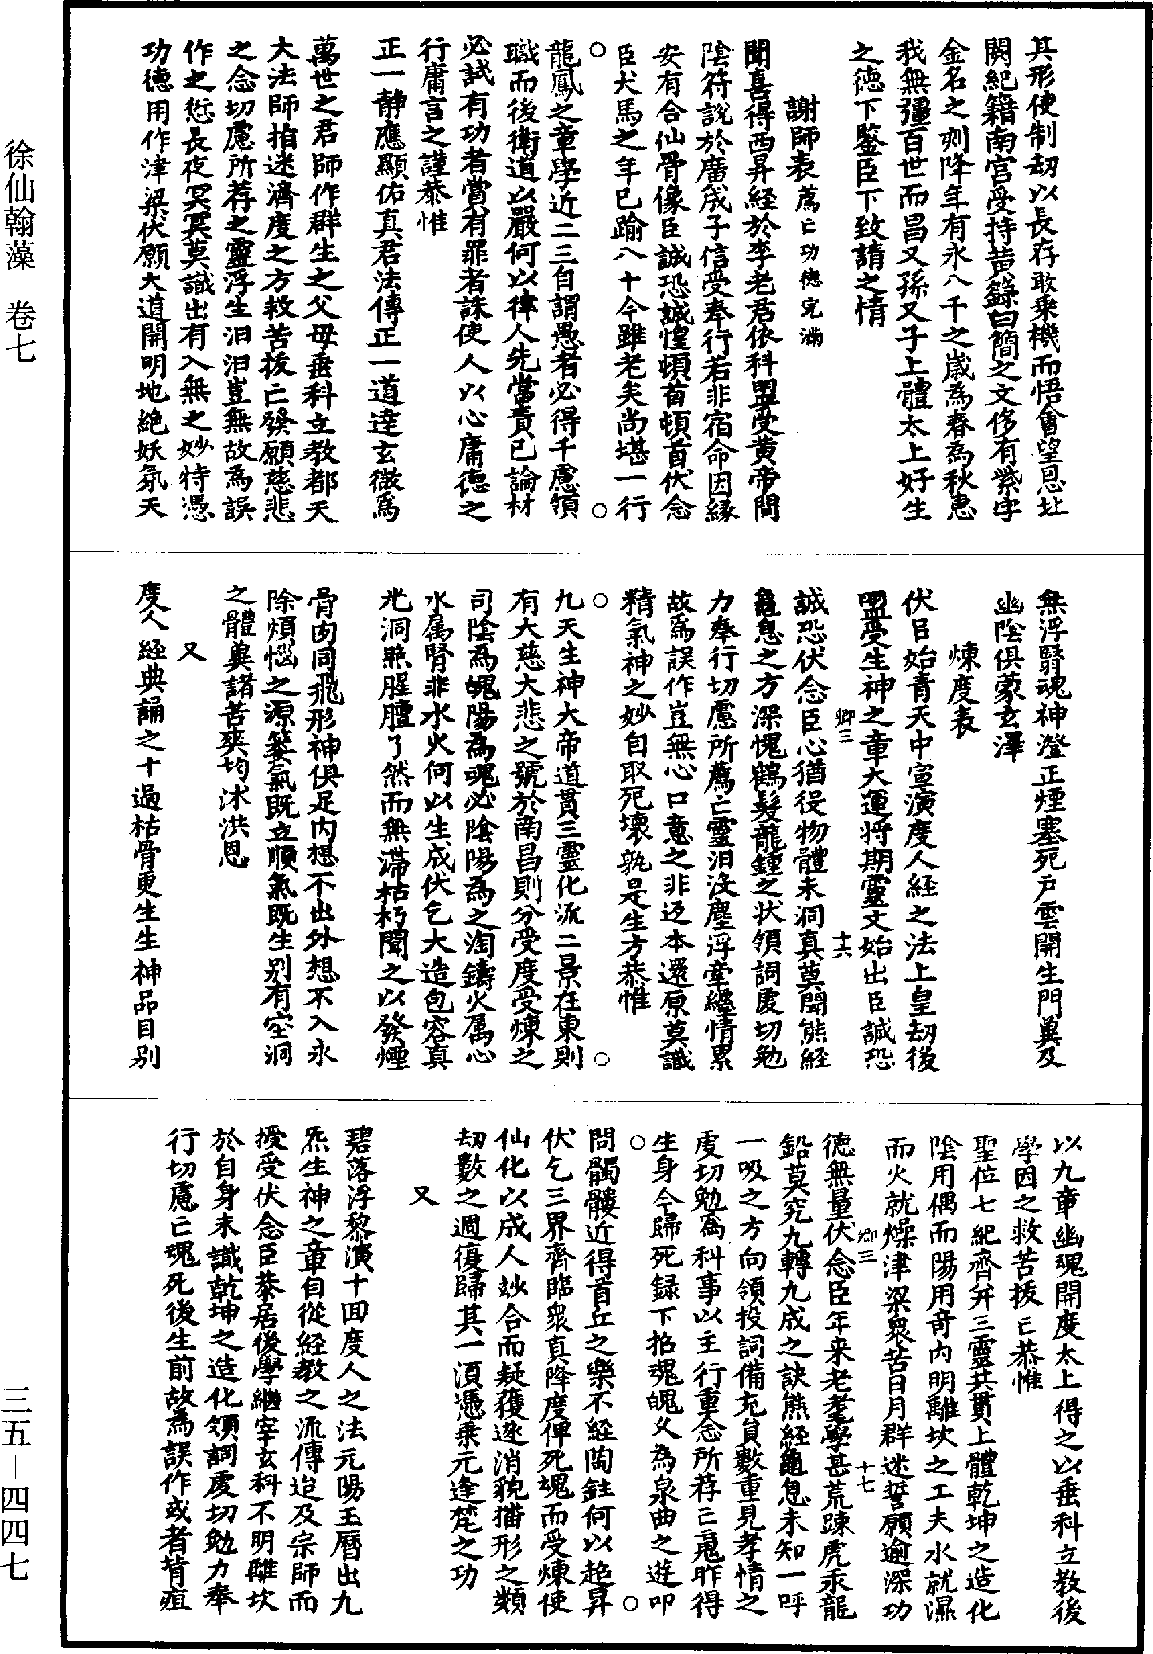 徐仙翰藻 卷七
其形使制刼以長存敢乘機而悟會望恩址
闕紀籍南宮受持黃籙白簡之文侈有紫字
金名之刻降年有永八千之歲為春為秋惠
我無彊百世而昌又孫又子上體太上好生
之德下鑒臣下致請之情
謝師表薦亡功德完滿
聞喜得西昇經於李老君依科盟受黃帝間
陰符說於廣成子信受奉行若非宿命因緣
安有合仙骨像臣誠恐誠惶頓首頓首伏念
臣犬馬之年已踰八十今雖老矣尚堪一行
龍鳳之章學近二三自謂愚者必得千慮領
職而後衛道以嚴何以律人先當責己論材
必試有功者賞有罪者誅使人以心庸德之
行庸言之謹恭惟
正一靜應顯佑真君法傳正一道達玄微為
萬世之君師作群生之父母垂科立教都天
大法師指迷濟度之方救苦拔亡發願慈悲
之念切慮所荐之靈浮生汨汨豈無故為誤
作之愆長夜冥冥莫識出有入無之妙特憑
功德用作津梁伏願大道開明地絕妖氛天
無浮翳魂神澄正煙塞死戶雲開生門冀及
幽陰俱蒙玄澤
煉度表
伏呂始青天中宣演度人經之法上皇刼後
盟受生神之章大運將期靈文始出臣誠恐
誠恐伏念臣心猶役物體未洞真莫聞熊經
龜息之方深愧鶴髮龍鍾之状領詞虔切勉
力奉行切慮所薦亡靈汨沒塵浮牽纏情累
故為誤作豈無心口意之非返本還原莫識
精氣神之妙自取死壞孰是生方恭惟
九天生神大帝道貫三靈化流二景在東則
有大慈大悲之號於南昌則分受度受煉之
司陰為魄陽為魂必陰陽為之淘鑄火属心
水属腎非水火何以生成伏乞大造包容真
光洞照腥膻了然而無滯枯朽聞之以發煙
骨肉同飛形神俱足內想不出外想不入永
除煩惱之源蒌氣既立順氣既生别有空洞
之體冀諸苦爽均沐洪恩
又
度人經典誦之十過枯骨更生生神品目别
以九章幽魂開度太上得之以垂科立教後
學因之救苦拔亡恭惟
聖位七紀齊并三靈共貫上體乾坤之造化
陰用偶而陽用奇內明離坎之工夫水就濕
而火就燥津梁衆苦日月群迷誓願逾深功
德無量伏念臣年来老耄學甚荒踈虎汞龍
鉛莫究九轉九成之訣熊經龜息未知一呼
一吸之方向領投詞備充員數重見孝情之
虔切勉為科事以主行重念所荐亡鬼昨得
生身今歸死録下招魂魄久為泉曲之遊叩
問髑髏近得首丘之樂不經陶鉒何以超昇
伏乞三界齊臨衆真降度俾死魂而受煉使
仙化以成人妙合而凝獲逃消貌猫形之類
刼數之週復歸其一湏憑乘元逢梵之功
又
碧落浮黎演十回度人之法元陽玉曆出九
炁生神之章自從經教之流傳迨及宗師而
授受伏念臣恭居後學繼宰玄科不明離坎
於自身未識乾坤之造化領詞虔切勉力奉
行切慮亡魂死後生前故為誤作或者背疽
三五－四四七